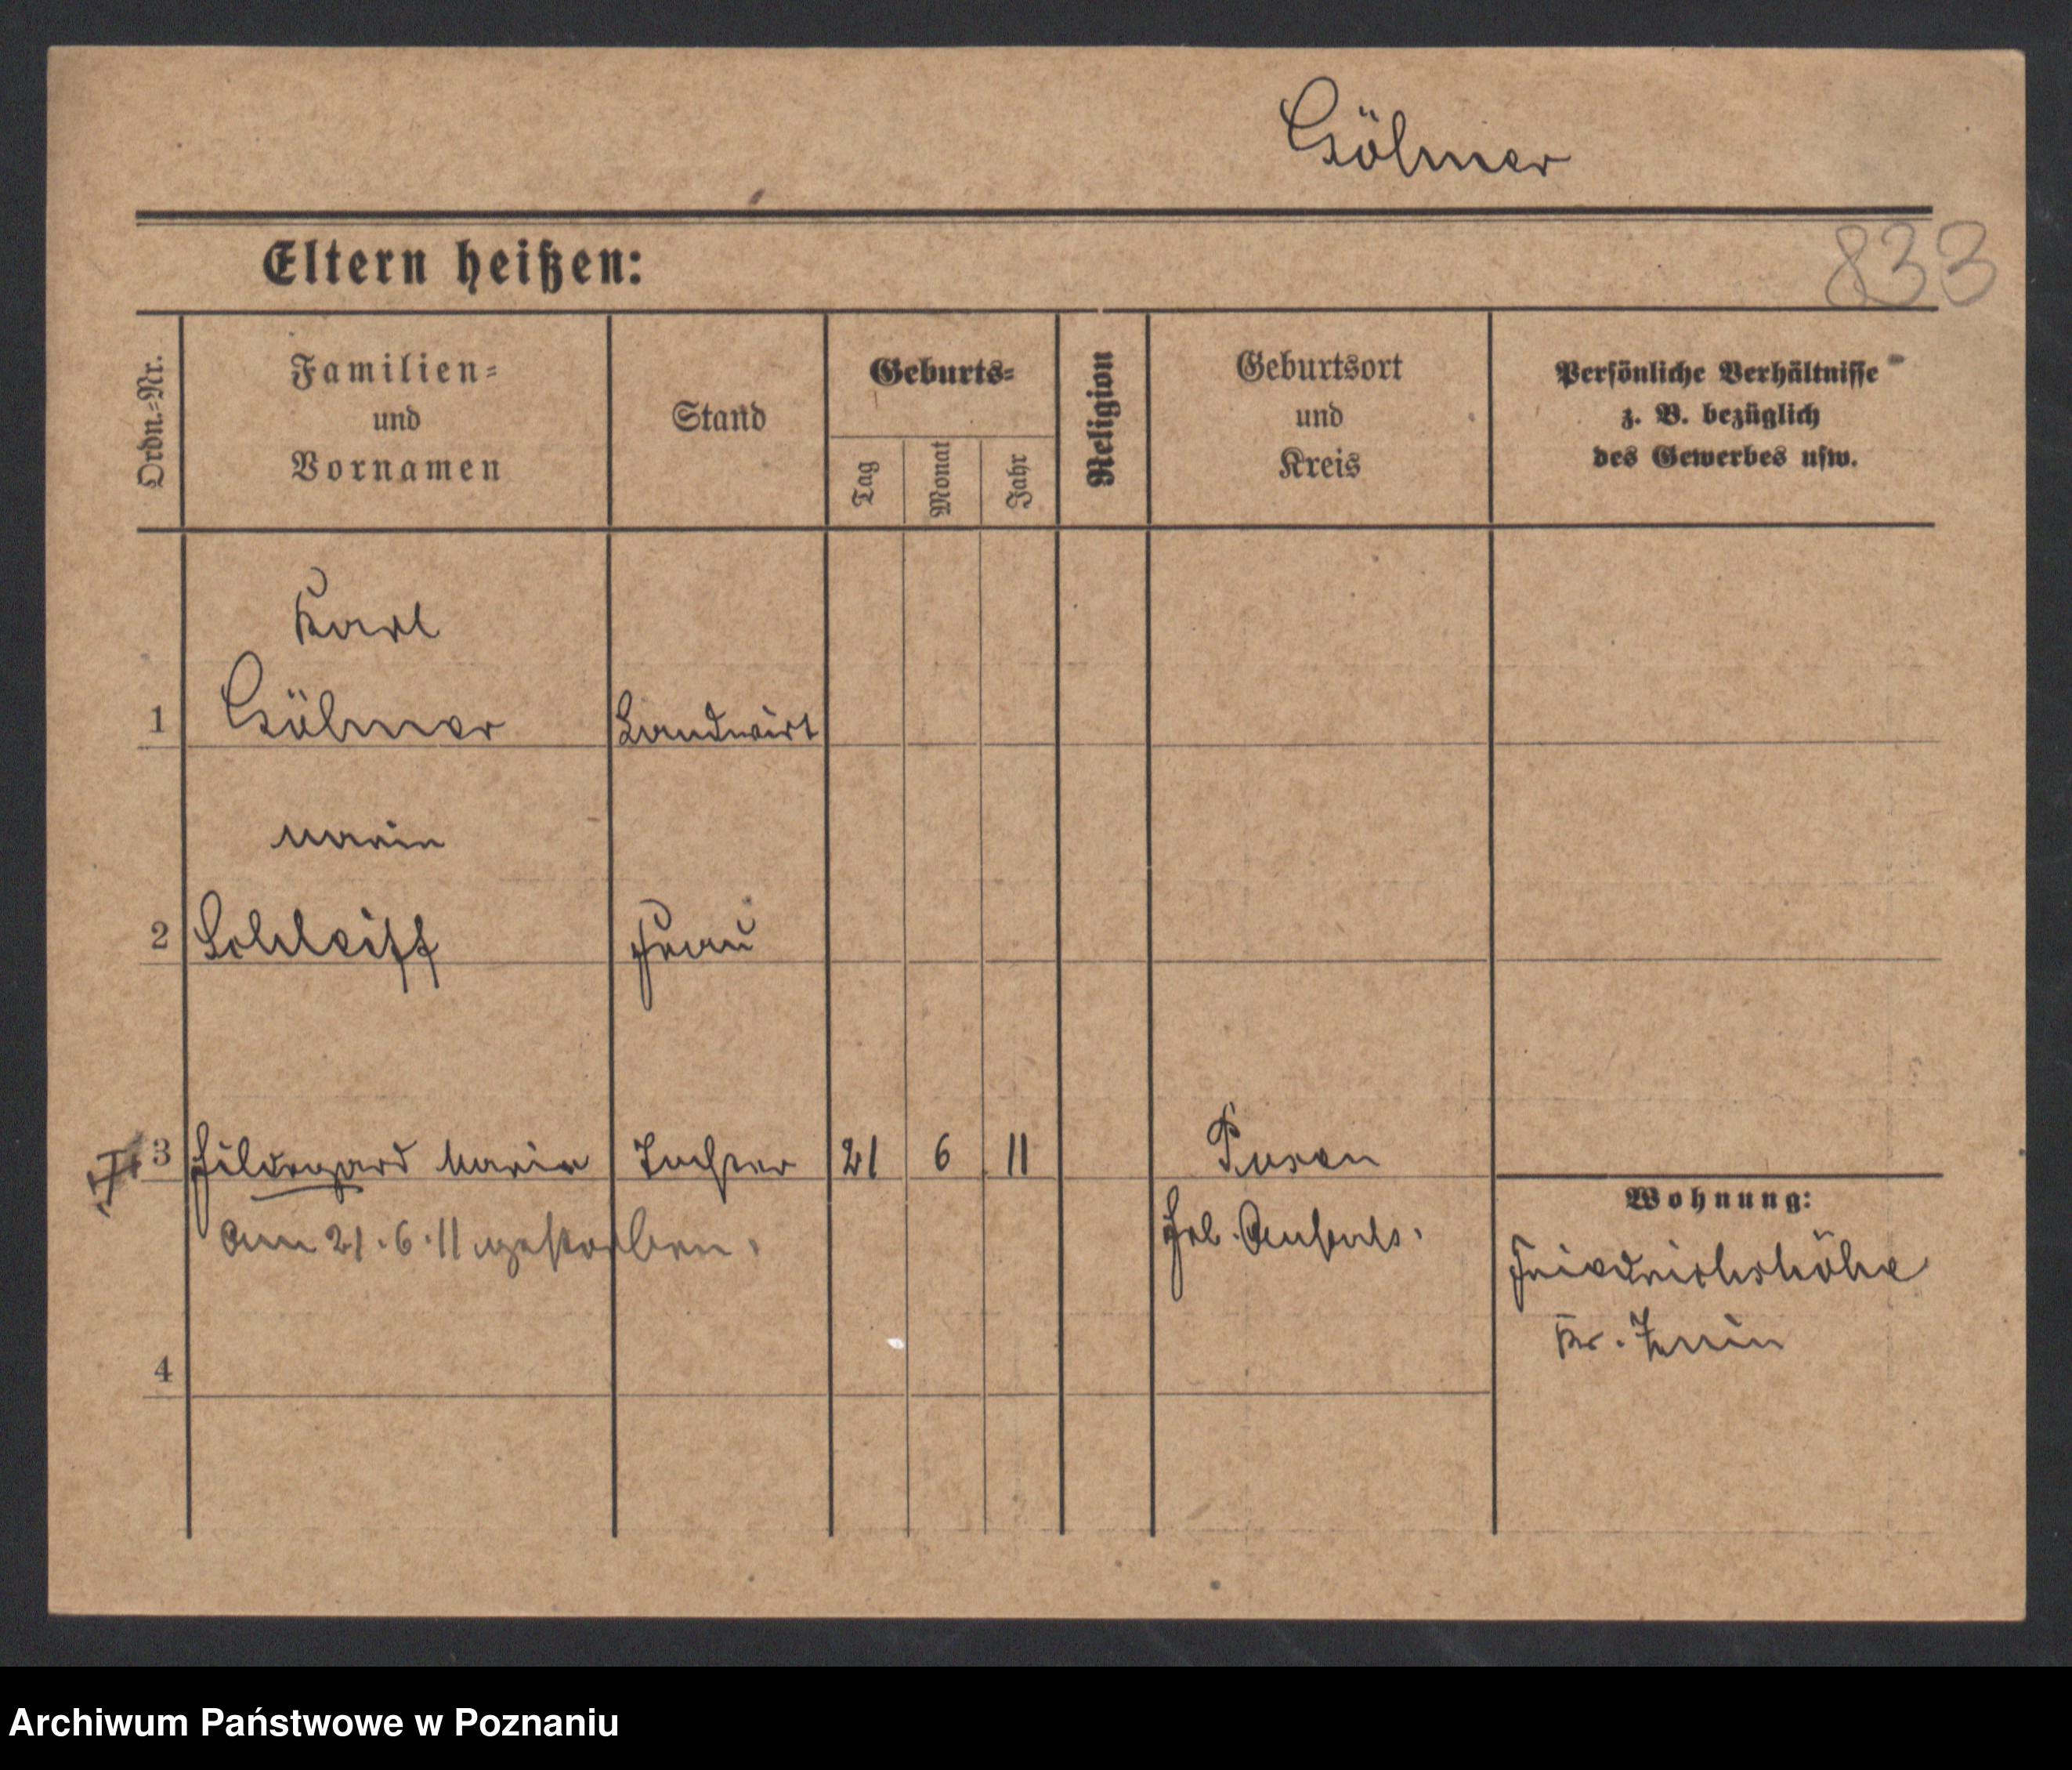 Göhner
833
Eltern heißen:
Ordn.=Nr.
Familien=
und
Vornamen
Stand
Geburts=
Tag
Monat
Jahr
Religion
Geburtsort
und
Kreis
Persönliche Verhältnisse
z. B. bezüglich
des Gewerbes usw.
Karl
1 Göhner Landwirt
Maria
2 Schleiff Frau
3 Hildegard Maria Tochter 21 6 11 Posen
am 21.6.11 gestorben.
Wohnung:
Friedrichshöhe
Kr. Znin
4
Archiwum Państwowe w Poznaniu